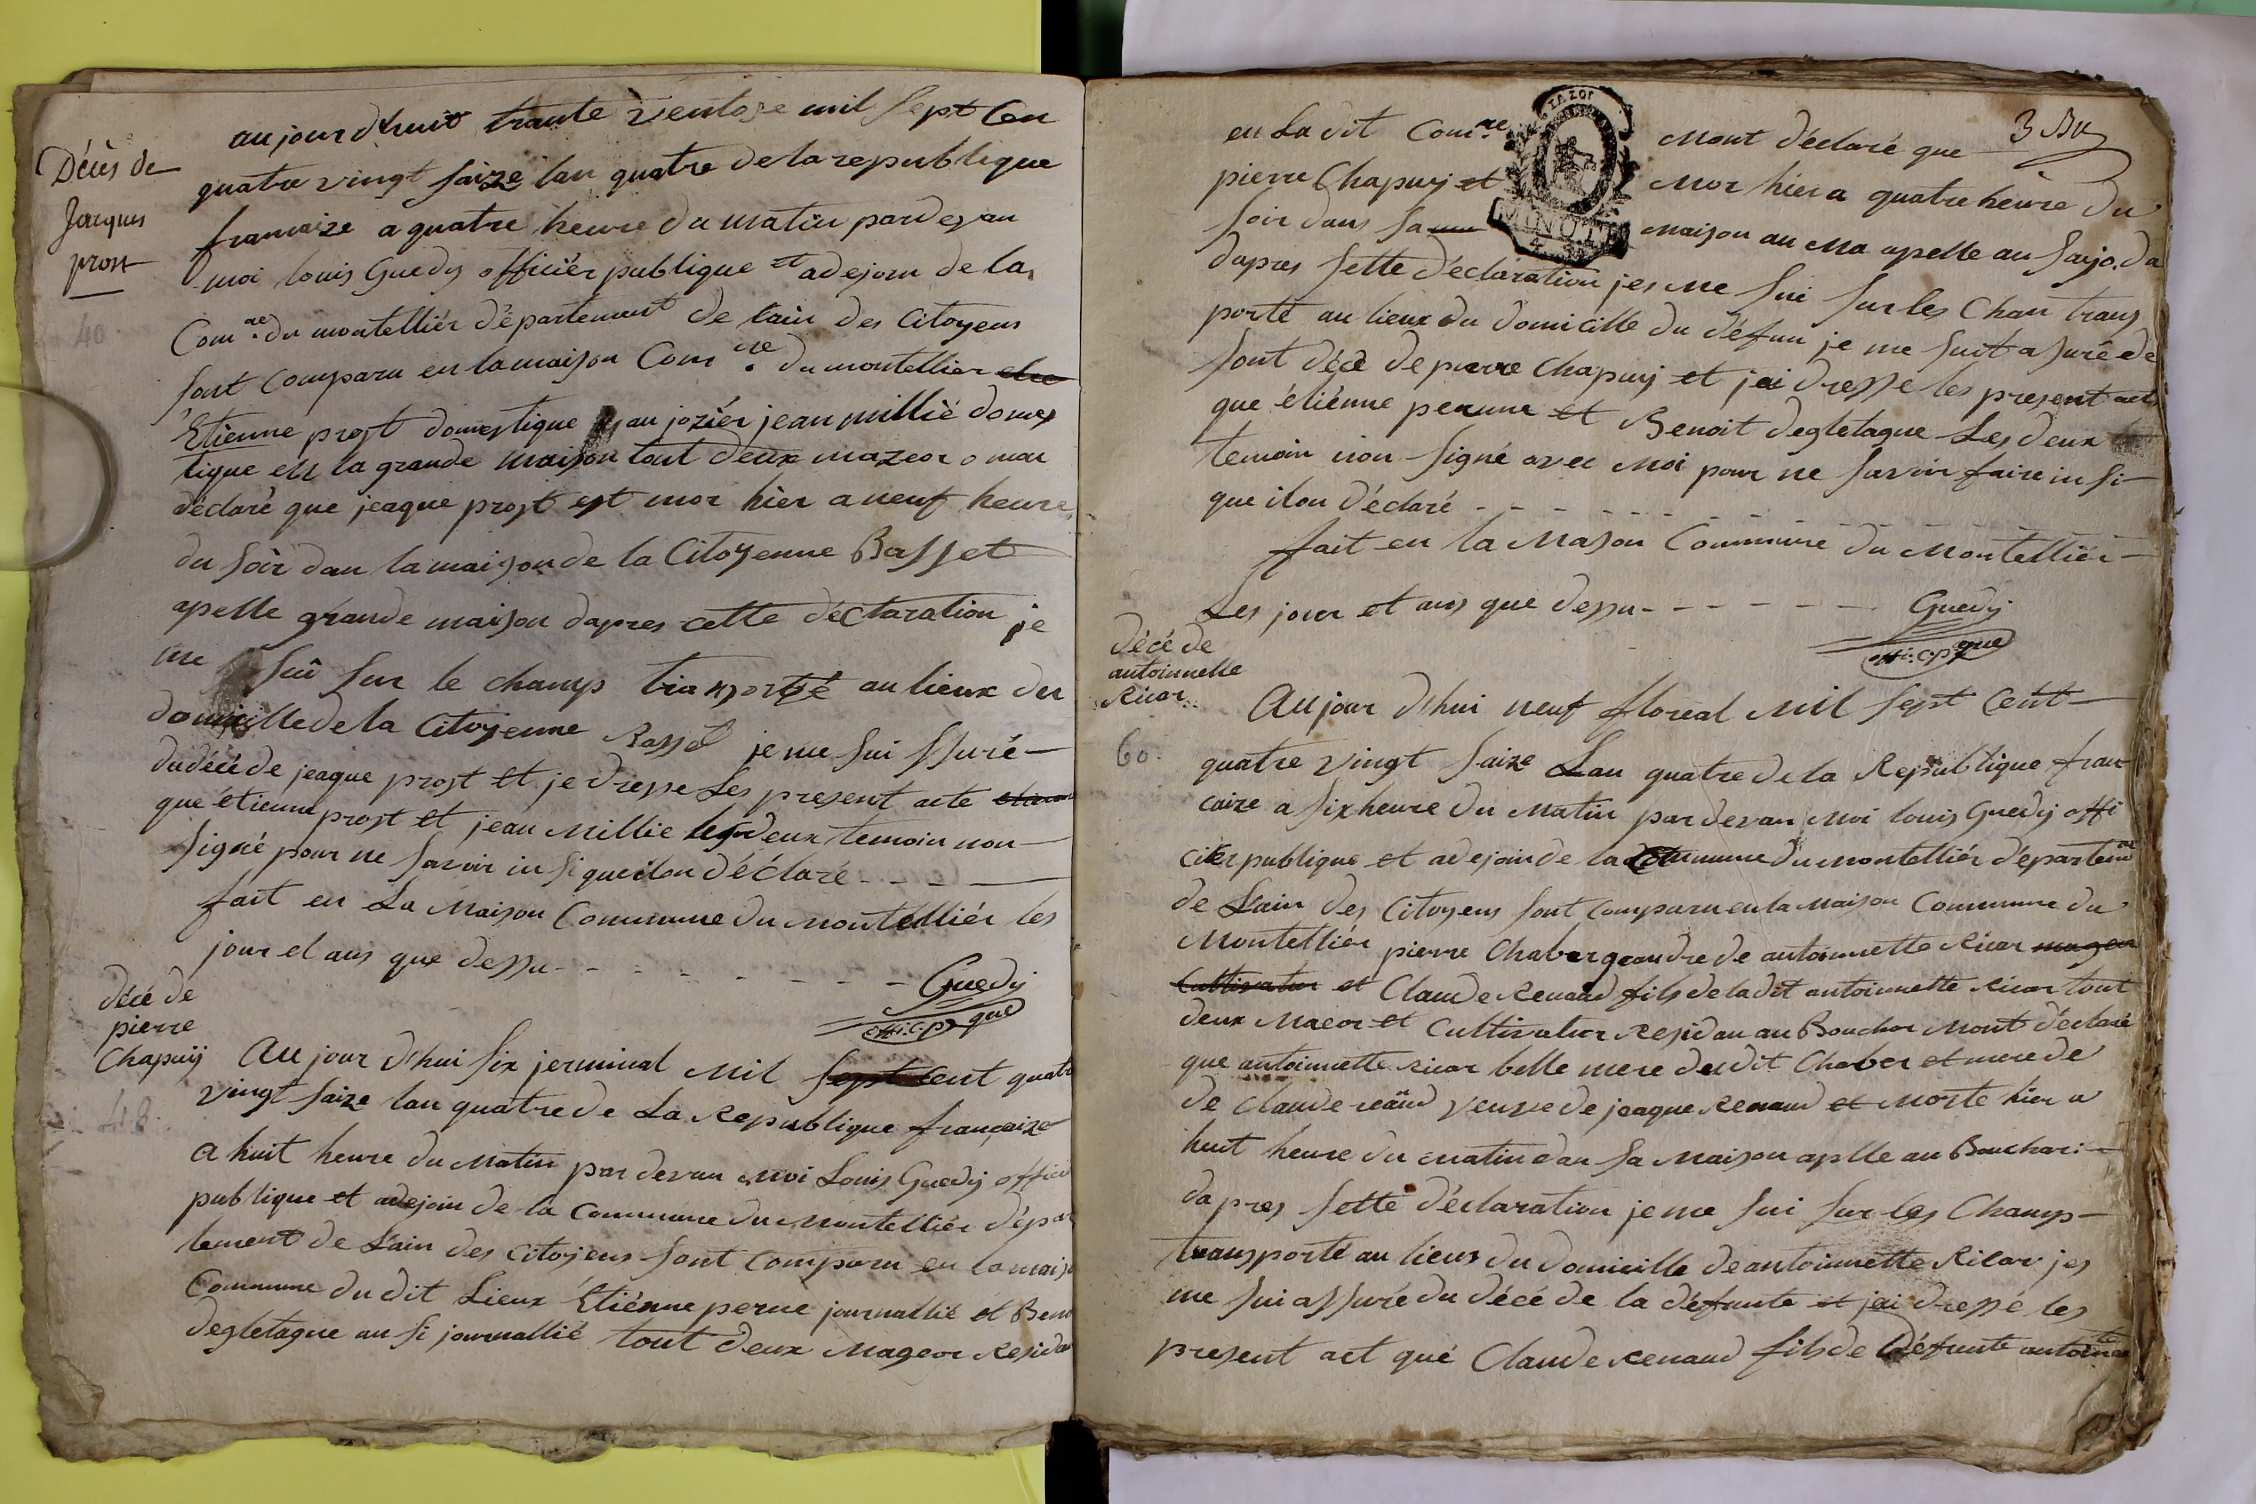 Décès de
Jacques
prost
40
aujourd'huit trante ventoze mil sept Cen
quatre vingt saize lan quatre de la republique
francaize a quatre heure du matin pardevan
moi louis Guedy officiér publique et adejoin de la
Com.ne du montelliér département de lain des Citoyens
sont Comparu en la maison Com.ne du montellier
Etienne prost domestique au joziér jean millié domes
tique en la grande maison tout deux mazeor o mon
déclaré que jeaque prost est mor hier a neuf heure
du soir dan la maison de la Citoyenne Basset
apelle grande maison dapres cette déclaration je
me sui sur le champ transporté au lieux du
domicille de la Citoyenne Basset je me sui ssuré
du décé de jeaque prost et je dresse Les present acte
que étienne prost et jean Millie les deux temoin non
signé pour ne savoir in si que ilon déclaré - - -
fait en La Maison Commune du Montelliér les
jour et ans que dessu - - - - - - - - Guedy
offi.c.p que
décé de
pierre
Chapuij
48
Au jour d'hui six jerminal Mil sept Cent quatre
vingt saize lan quatre de La Republique françaize
a huit heure du Matin par devan moi Louis Guedy offici
publique et adejoin de la Commune du Montelliér dépar
tement de L'ain des Citoyens sont Comparu en la mais
Commune du dit Lieux Etiénne perne journallié et Beno
Degletagne au si journallié tout deux Mageor Resida
3 Bu
en La dit Com.ne Mont déclaré que
pierre Chapuij et Mor hier a quatre heure du
soir dans sa Maison au Ma apelle au Sarjo. da
MINUTE
dapres sette déclaration jes me sui sur les Chan trans
porté au lieux du domicille du défun je me suit asuré de
sont décé de pierre Chapuij et jai dresse les present acte
que étiénne perune et Benoit degletagne Les deux
temoin non signé avec Moi pour ne savoir faire in si
que ilon déclaré - - - - - - - - - -
fait en la Mason Commune du Montelliér
Les jour et ans que dessu - - - - - - Guedy
offi.c.p que
décé de
antoinnette
Ricar
60.
Au jour d'hui neuf floreal Mil sept Cent
quatre vingt saize Lan quatre de la Republique fran
caize a six heure du Matin par devan Moi louis Guedy offi
cier publique et adejoin de la Commune du Montelliér département
de L'ain des Citoyens sont Comparu en la Maison Commune du
Montelliér pierre Chaber geandre de antoinnette Ricar mageor
Cultivateur et Claude Renaud fils de la dit antoinnette Ricar tout
deux Maeor et Cultivateur Residan au Bouchar Mont déclaré
que antoinnette Ricar belle mere du dit Chaber et mere de
de Claude reaud veuve de jeaque Renaud et Morte hier a
huit heure du matin dan sa Maison aplle au Bouchar
dapres sette déclaration je me sui sur les Champ
transporté au lieux du domicille de antoinnette Ricar jes
me sui assuré du décé de la défunte et jai dressé les
present act que Claude Renaud fils de défunte antoinette